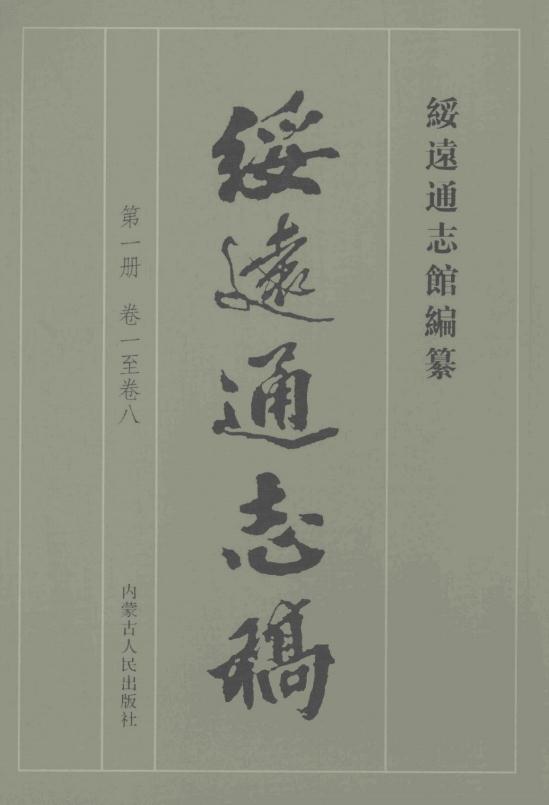 綏遠通志館編纂
綏遠通志稿
第一册 卷一至卷八
内蒙古人民出版社